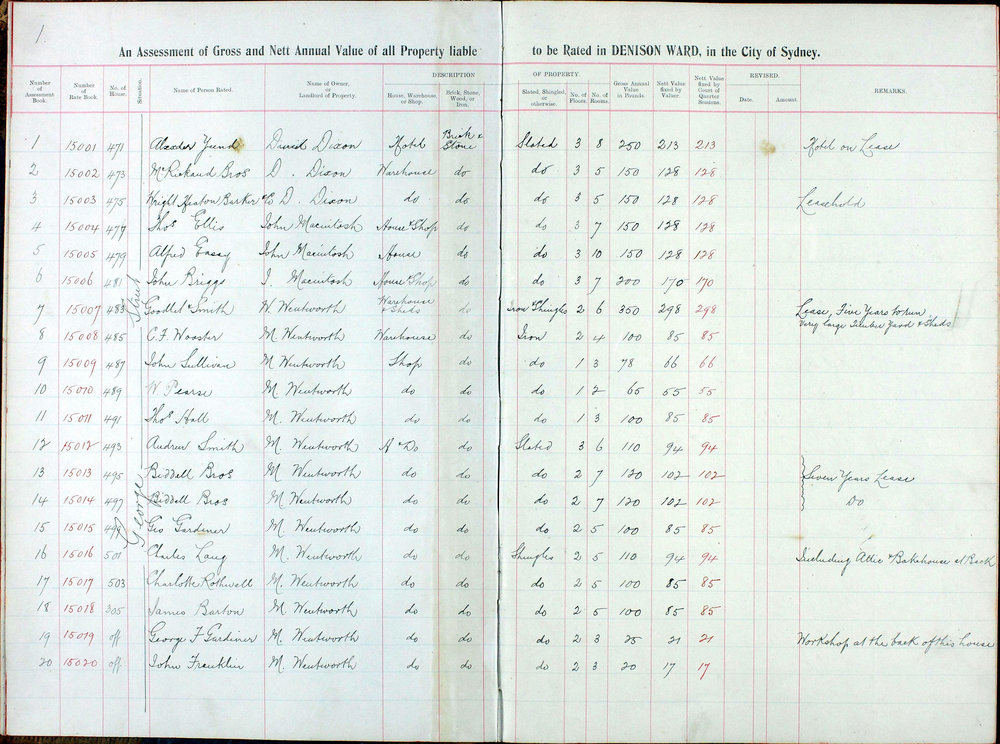 1.
An Assessment of Gross and Nett Annual Value of all Property liable to be Rated in DENISON WARD, in the City of Sydney.
Number of Assessment Book. Number of Rate Book. No. of House. Situation. Name of Person Rated. Name of Owner, or Landlord of Property. DESCRIPTION OF PROPERTY. House, Warehouse, or Shop. Brick, Stone, Wood, or Iron. Slated, Shingled, or otherwise. No. of Floors. No. of Rooms. Gross Annual Value in Pounds. Nett Value fixed by Valuer. Nett Value fixed by Court of Quarter Sessions. REVISED. Date. Amount. REMARKS.
George Street
1 15001 471 David Dixon Hotel Brick & Stone Slated 3 8 250 213 213 Hotel on Lease
2 15002 473 Bros D. Dixon Warehouse do do 3 5 150 128 128
3 15003 475 Wright Heaton Barker & Co D. Dixon do do do 3 5 150 128 128 Leasehold
4 15004 477 Thos Ellis John Macintosh House & Shop do do 3 7 150 128 128
5 15005 479 Alfred John Macintosh House do do 3 10 150 128 128
6 15006 481 John Briggs J. Macintosh House & Shop do do 3 7 200 170 170
7 15007 483 Goodlet & Smith W. Wentworth Warehouse & Sheds do Iron & Shingles 2 6 350 298 298 Lease, Five Years to run Very large Timber Yard & Sheds
8 15008 485 C.F. Wooster M. Wentworth Warehouse do Iron 2 4 100 85 85
9 15009 487 John Sullivan M. Wentworth Shop do do 1 3 78 66 66
10 15010 489 W. Pearse M. Wentworth do do do 1 2 65 55 55
11 15011 491 Thos Hall M. Wentworth do do do 1 3 100 85 85
12 15012 493 Andrew Smith M. Wentworth H & Do do Slated 3 6 110 94 94
13 15013 495 Biddell Bros M. Wentworth do do do 2 7 120 102 102 Seven Years Lease
14 15014 497 Biddell Bros M. Wentworth do do do 2 7 120 102 102 Do
15 15015 499 Geo Gardiner M. Wentworth do do do 2 5 100 85 85
16 15016 501 Charles M. Wentworth do do Shingles 2 5 110 94 94 Including Attic & Bakehouse at Back
17 15017 503 Charlotte Rothwell M. Wentworth do do do 2 5 100 85 85
18 15018 305 James Barton M. Wentworth do do do 2 5 100 85 85
19 15019 off George F Gardiner M. Wentworth do do do 2 3 25 21 21 Workshop at the back of this house
20 15020 off John Franklin M. Wentworth do do do 2 3 20 17 17